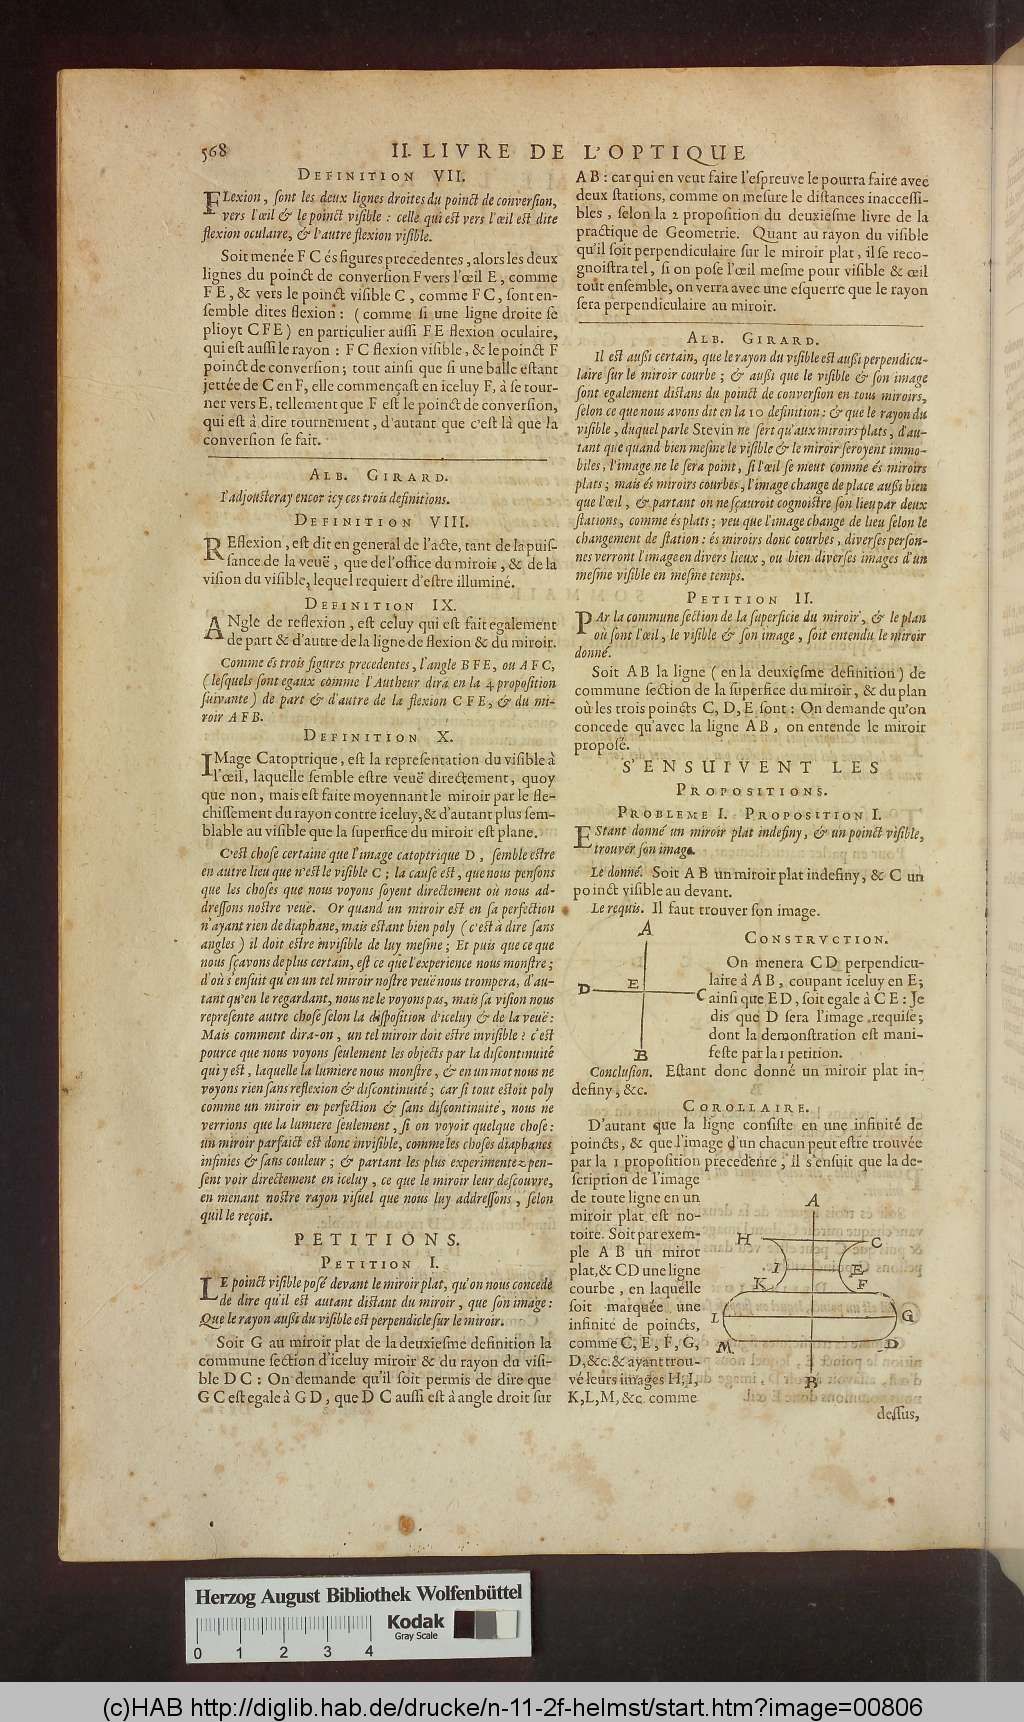 568
II. LIVRE DE L'OPTIQUE
DEFINITION VII.
FLexion, ſont les deux lignes droites du poinct de converſion,
vers l'œil & le poinct viſible : celle qui eſt vers l'œil eſt dite
flexion oculaire, & l'autre flexion viſible.
Soit menée F C és figures precedentes, alors les deux
lignes du poinct de converſion F vers l'œil E, comme
F E, & vers le poinct viſible C, comme F C, ſont en-
ſemble dites flexion : (comme ſi une ligne droite ſe
plioyt C F E) en particulier auſſi F E flexion oculaire,
qui eſt auſſi le rayon : F C flexion viſible, & le poinct F
poinct de converſion; tout ainſi que ſi une balle eſtant
jettée de C en F, elle commençaſt en iceluy F, à ſe tour-
ner vers E, tellement que F eſt le poinct de converſion,
qui eſt à dire tournement, d'autant que c'eſt là que la
converſion ſe fait.
ALB. GIRARD.
I'adjouſteray encor icy ces trois definitions.
DEFINITION VIII.
REflexion, eſt dit en general de l'acte, tant de la puiſ-
ſance de la veuë, que de l'office du miroir, & de la
viſion du viſible, lequel requiert d'eſtre illuminé.
DEFINITION IX.
ANgle de reflexion, eſt celuy qui eſt fait egalement
de part & d'autre de la ligne de flexion & du miroir.
Comme és trois figures precedentes, l'angle B F E, ou A F C,
(leſquels ſont egaux comme l'Autheur dira en la 4 propoſition
ſuivante) de part & d'autre de la flexion C F E, & du mi-
roir A F B.
DEFINITION X.
IMage Catoptrique, eſt la repreſentation du viſible à
l'œil, laquelle ſemble eſtre veuë directement, quoy
que non, mais eſt faite moyennant le miroir par le fle-
chiſſement du rayon contre iceluy, & d'autant plus ſem-
blable au viſible que la ſuperfice du miroir eſt plane.
C'eſt choſe certaine que l'image catoptrique D, ſemble eſtre
en autre lieu que n'eſt le viſible C; la cauſe eſt, que nous penſons
que les choſes que nous voyons ſoyent directement où nous ad-
dreſſons noſtre veuë. Or quand un miroir eſt en ſa perfection
n'ayant rien de diaphane, mais eſtant bien poly (c'eſt à dire ſans
angles) il doit eſtre inviſible de luy meſme; Et puis que ce que
nous ſçavons de plus certain, eſt ce que l'experience nous monſtre;
d'où s'enſuit qu'en un tel miroir noſtre veuë nous trompera, d'au-
tant qu'en le regardant, nous ne le voyons pas, mais ſa viſion nous
repreſente autre choſe ſelon la diſpoſition d'iceluy & de la veuë:
Mais comment dira-on, un tel miroir doit eſtre inviſible? c'eſt
pource que nous voyons ſeulement les objects par la diſcontinuité
qui y eſt, laquelle la lumiere nous monſtre, & en un mot nous ne
voyons rien ſans reflexion & diſcontinuité; car ſi tout eſtoit poly
comme un miroir en perfection & ſans diſcontinuité, nous ne
verrions que la lumiere ſeulement, ſi on voyoit quelque choſe:
un miroir parfaict eſt donc inviſible, comme les choſes diaphanes
infinies & ſans couleur; & partant les plus experimentez pen-
ſent voir directement en iceluy, ce que le miroir leur deſcouvre,
en menant noſtre rayon viſuel que nous luy addreſſons, ſelon
qu'il le reçoit.
PETITIONS.
PETITION I.
LE poinct viſible poſé devant le miroir plat, qu'on nous concede
de dire qu'il eſt autant diſtant du miroir, que ſon image:
Que le rayon auſſi du viſible eſt perpendicle ſur le miroir.
Soit G au miroir plat de la deuxieſme definition la
commune ſection d'iceluy miroir & du rayon du viſi-
ble D C : On demande qu'il ſoit permis de dire que
G C eſt egale à G D, que D C auſſi eſt à angle droit ſur
A B : car qui en veut faire l'eſpreuve le pourra faire avec
deux ſtations, comme on meſure le diſtances inacceſſi-
bles, ſelon la 2 propoſition du deuxieſme livre de la
practique de Geometrie. Quant au rayon du viſible
qu'il ſoit perpendiculaire ſur le miroir plat, il ſe reco-
gnoiſtra tel, ſi on poſe l'œil meſme pour viſible & œil
tout enſemble, on verra avec une eſquerre que le rayon
ſera perpendiculaire au miroir.
ALB. GIRARD.
Il eſt auſſi certain, que le rayon du viſible eſt auſſi perpendicu-
laire ſur le miroir courbe; & auſſi que le viſible & ſon image
ſont egalement diſtans du poinct de converſion en tous miroirs,
ſelon ce que nous avons dit en la 10 definition: & que le rayon du
viſible, duquel parle Stevin ne ſert qu'aux miroirs plats, d'au-
tant que quand bien meſme le viſible & le miroir ſeroyent immo-
biles, l'image ne le ſera point, ſi l'œil ſe meut comme és miroirs
plats; mais és miroirs courbes, l'image change de place auſſi bien
que l'œil, & partant on ne ſçauroit cognoiſtre ſon lieu par deux
ſtations, comme és plats; veu que l'image change de lieu ſelon le
changement de ſtation: és miroirs donc courbes, diverſes perſon-
nes verront l'image en divers lieux, ou bien diverſes images d'un
meſme viſible en meſme temps.
PETITION II.
PAr la commune ſection de la ſuperficie du miroir, & le plan
où ſont l'œil, le viſible & ſon image, ſoit entendu le miroir
donné.
Soit A B la ligne (en la deuxieſme definition) de
commune ſection de la ſuperfice du miroir, & du plan
où les trois poincts C, D, E ſont: On demande qu'on
concede qu'avec la ligne A B, on entende le miroir
propoſé.
S'ENSUIVENT LES
PROPOSITIONS.
PROBLEME I. PROPOSITION I.
EStant donné un miroir plat indefiny, & un poinct viſible,
trouver ſon image.
Le donné. Soit A B un miroir plat indefiny, & C un
poinct viſible au devant.
Le requis. Il faut trouver ſon image.
A
D
E
C
B
CONSTRVCTION.
On menera C D perpendicu-
laire à A B, coupant iceluy en E;
ainſi que E D, ſoit egale à C E: Je
dis que D ſera l'image requiſe;
dont la demonſtration eſt mani-
feſte par la 1 petition.
Concluſion. Eſtant donc donné un miroir plat in-
definy, &c.
COROLLAIRE.
D'autant que la ligne conſiſte en une infinité de
poincts, & que l'image d'un chacun peut eſtre trouvée
par la 1 propoſition precedente, il s'enſuit que la de-
ſcription de l'image
de toute ligne en un
miroir plat eſt no-
toire. Soit par exem-
ple A B un miroir
plat, & CD une ligne
courbe, en laquelle
ſoit marquée une
infinité de poincts,
comme C, E, F, G,
D, &c. & ayant trou-
vé leurs images H, I,
K, L, M, &c. comme
A
H
C
I
E
K
F
L
G
M
D
B
deſſus,
Herzog August Bibliothek Wolfenbüttel
0 1 2 3 4
Kodak
Gray Scale
(c)HAB http://diglib.hab.de/drucke/n-11-2f-helmst/start.htm?image=00806